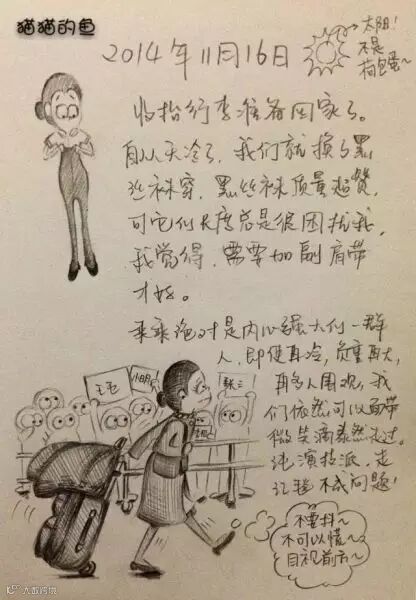 猫猫的鱼
2014年11月16日
太阳!
不是
荷包蛋~
收拾行李准备回家了。
自从天冷了,我们就换了黑
丝袜穿,黑丝袜质量超赞,
可它们长度总是很困扰我,
我觉得,需要加副肩带
才好。
乘乘绝对是内心强大的一群
人,即使再冷,负重再大,
再多人围观,我
们依然可以面带
微笑滴泰然走过。
绝演技派,走
红毯不成问题!
王五
小明
张三
不要抖~
不可以慌~
目视前方~
大数跨境